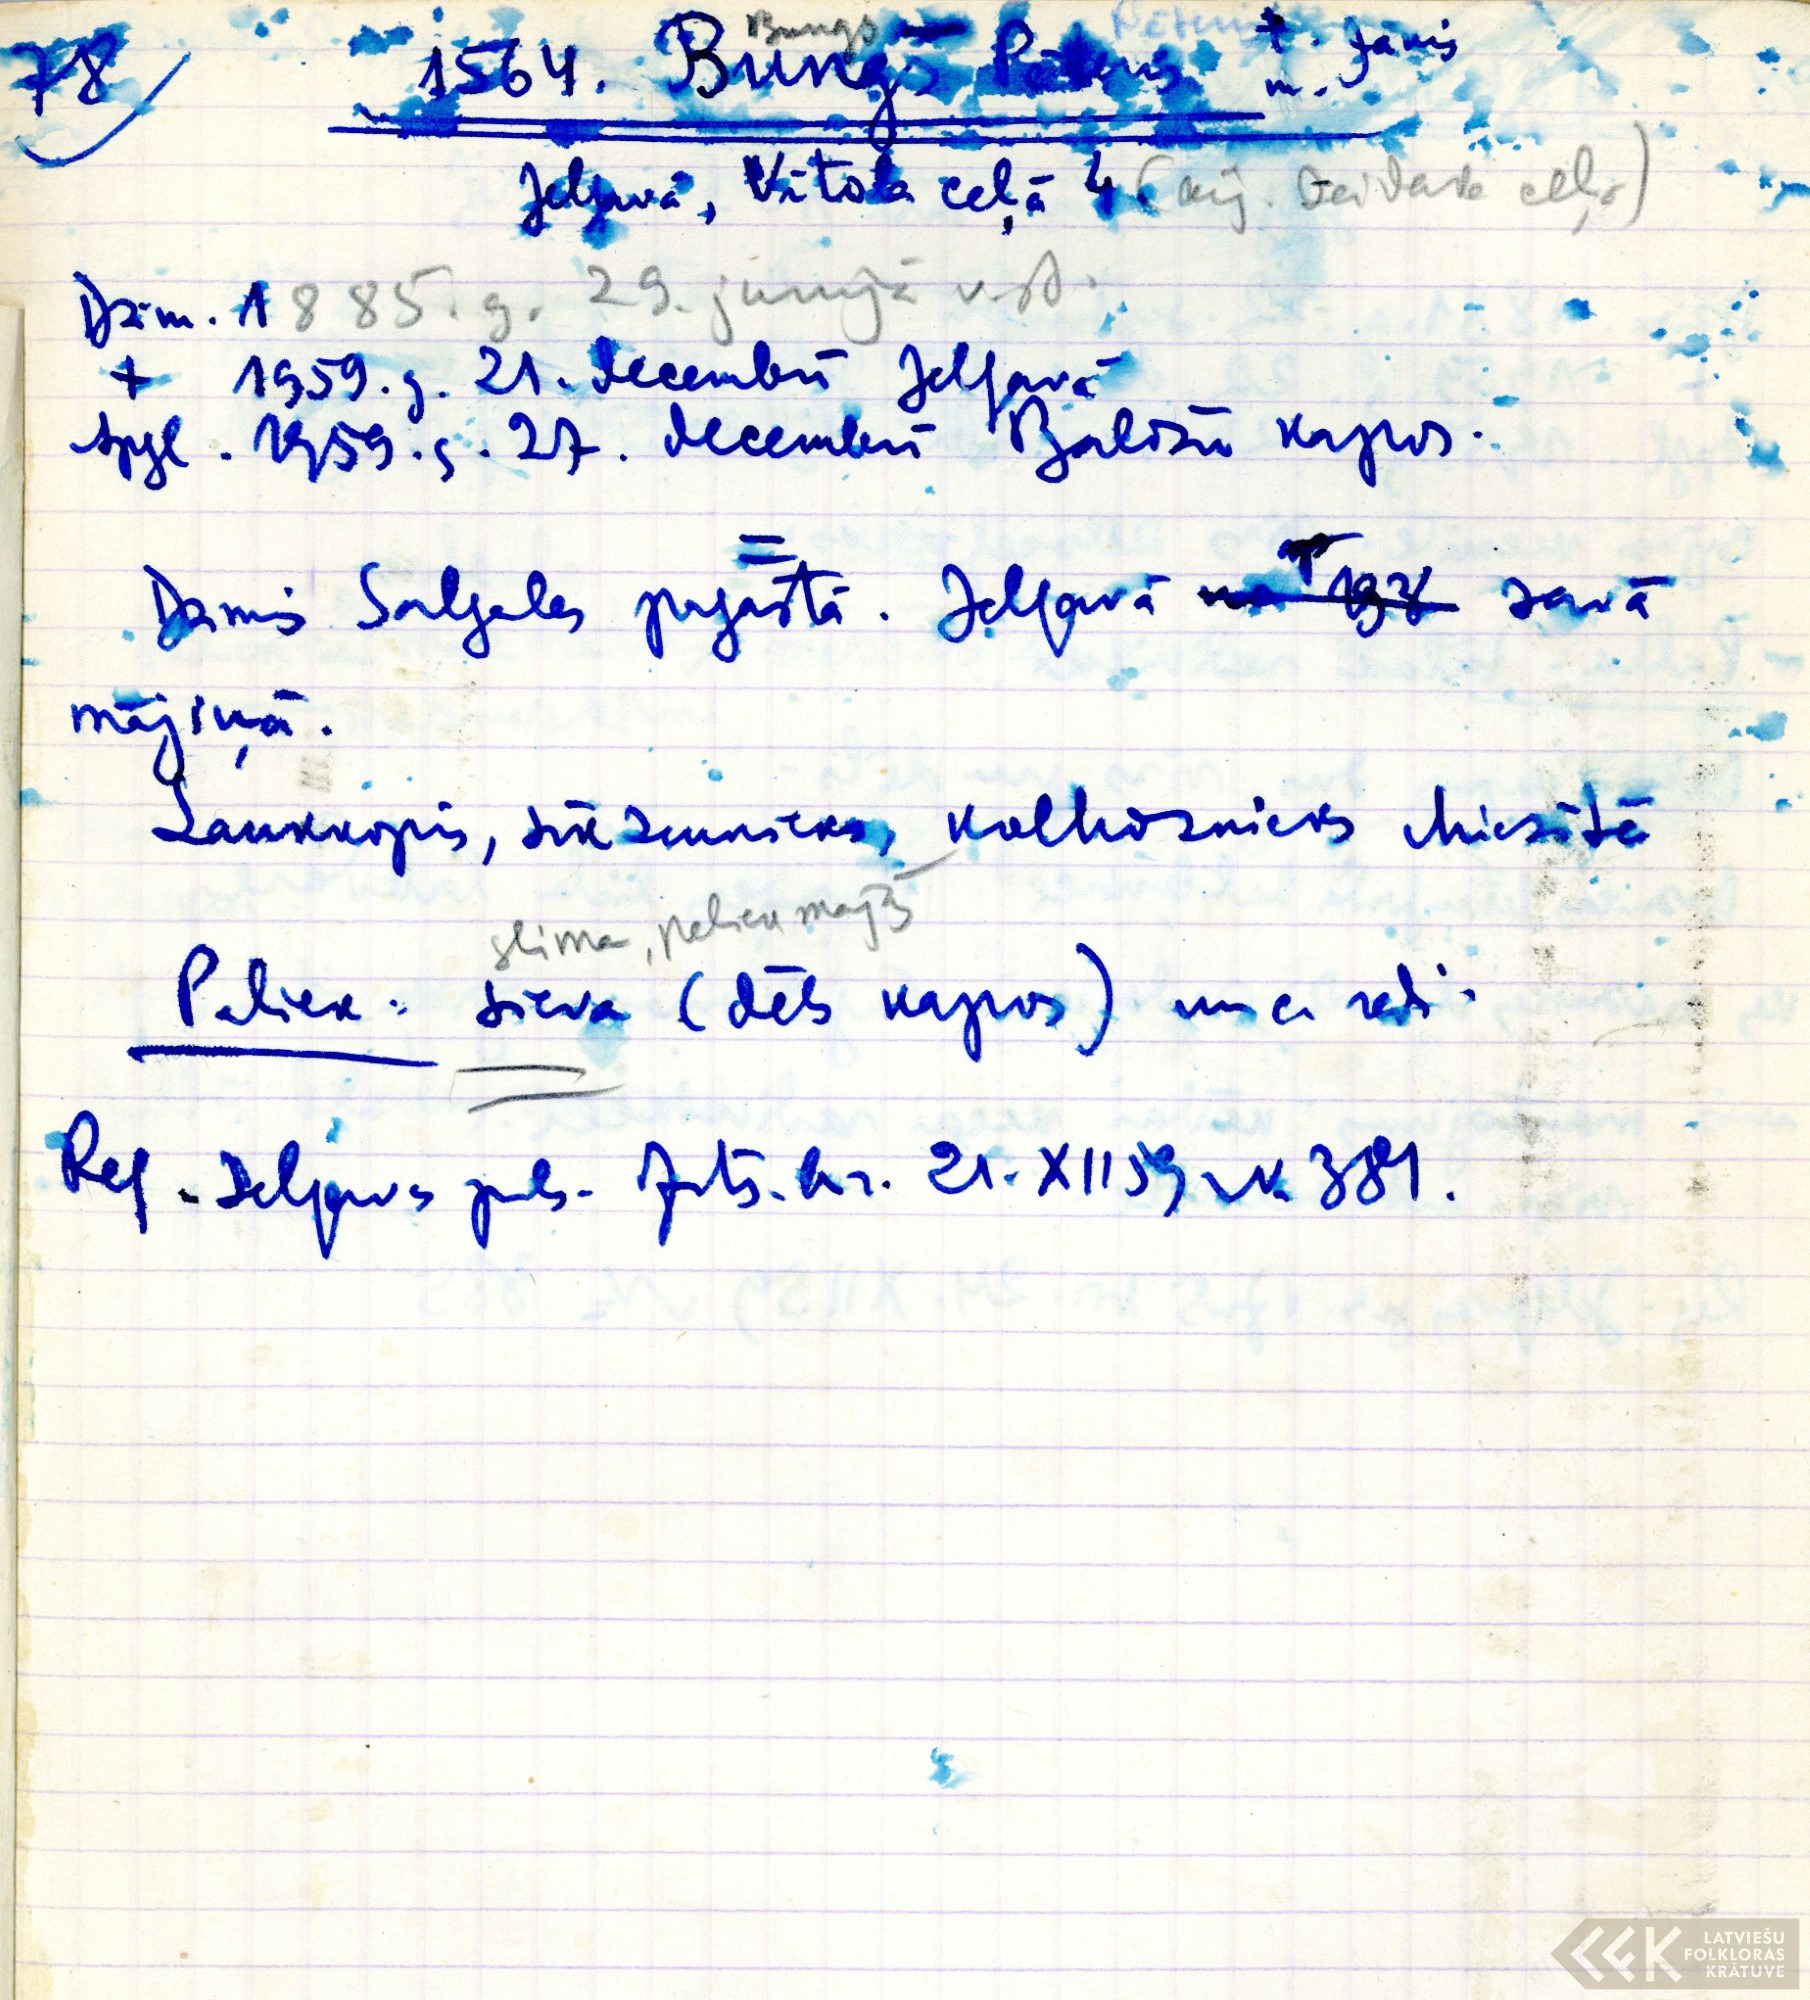 78
Bungs Pēteris
1564. Bungs Pēteris t. Jānis
m.
Jelgavā, Vītola ceļā 4 (arī ceļā)
Dzim. 1885. g. 29. jūnijā v. st.
+ 1959. g. 21. decembrī Jelgavā
apgl. 1959. g. 27. decembrī Baložu kapos.
Dzimis Salgales pagastā. Jelgavā savā
mājiņā.
Laukkopis, sīkzemnieks, kolhoznieks Miezītē
slima, paliek mājās
Paliek: sieva (dēls kapos) un ci radi.
Reģ. Jelgavas pils. Dzts. br. 21. XII 59 № 381.
LATVIEŠU
FOLKLORAS
KRĀTUVE